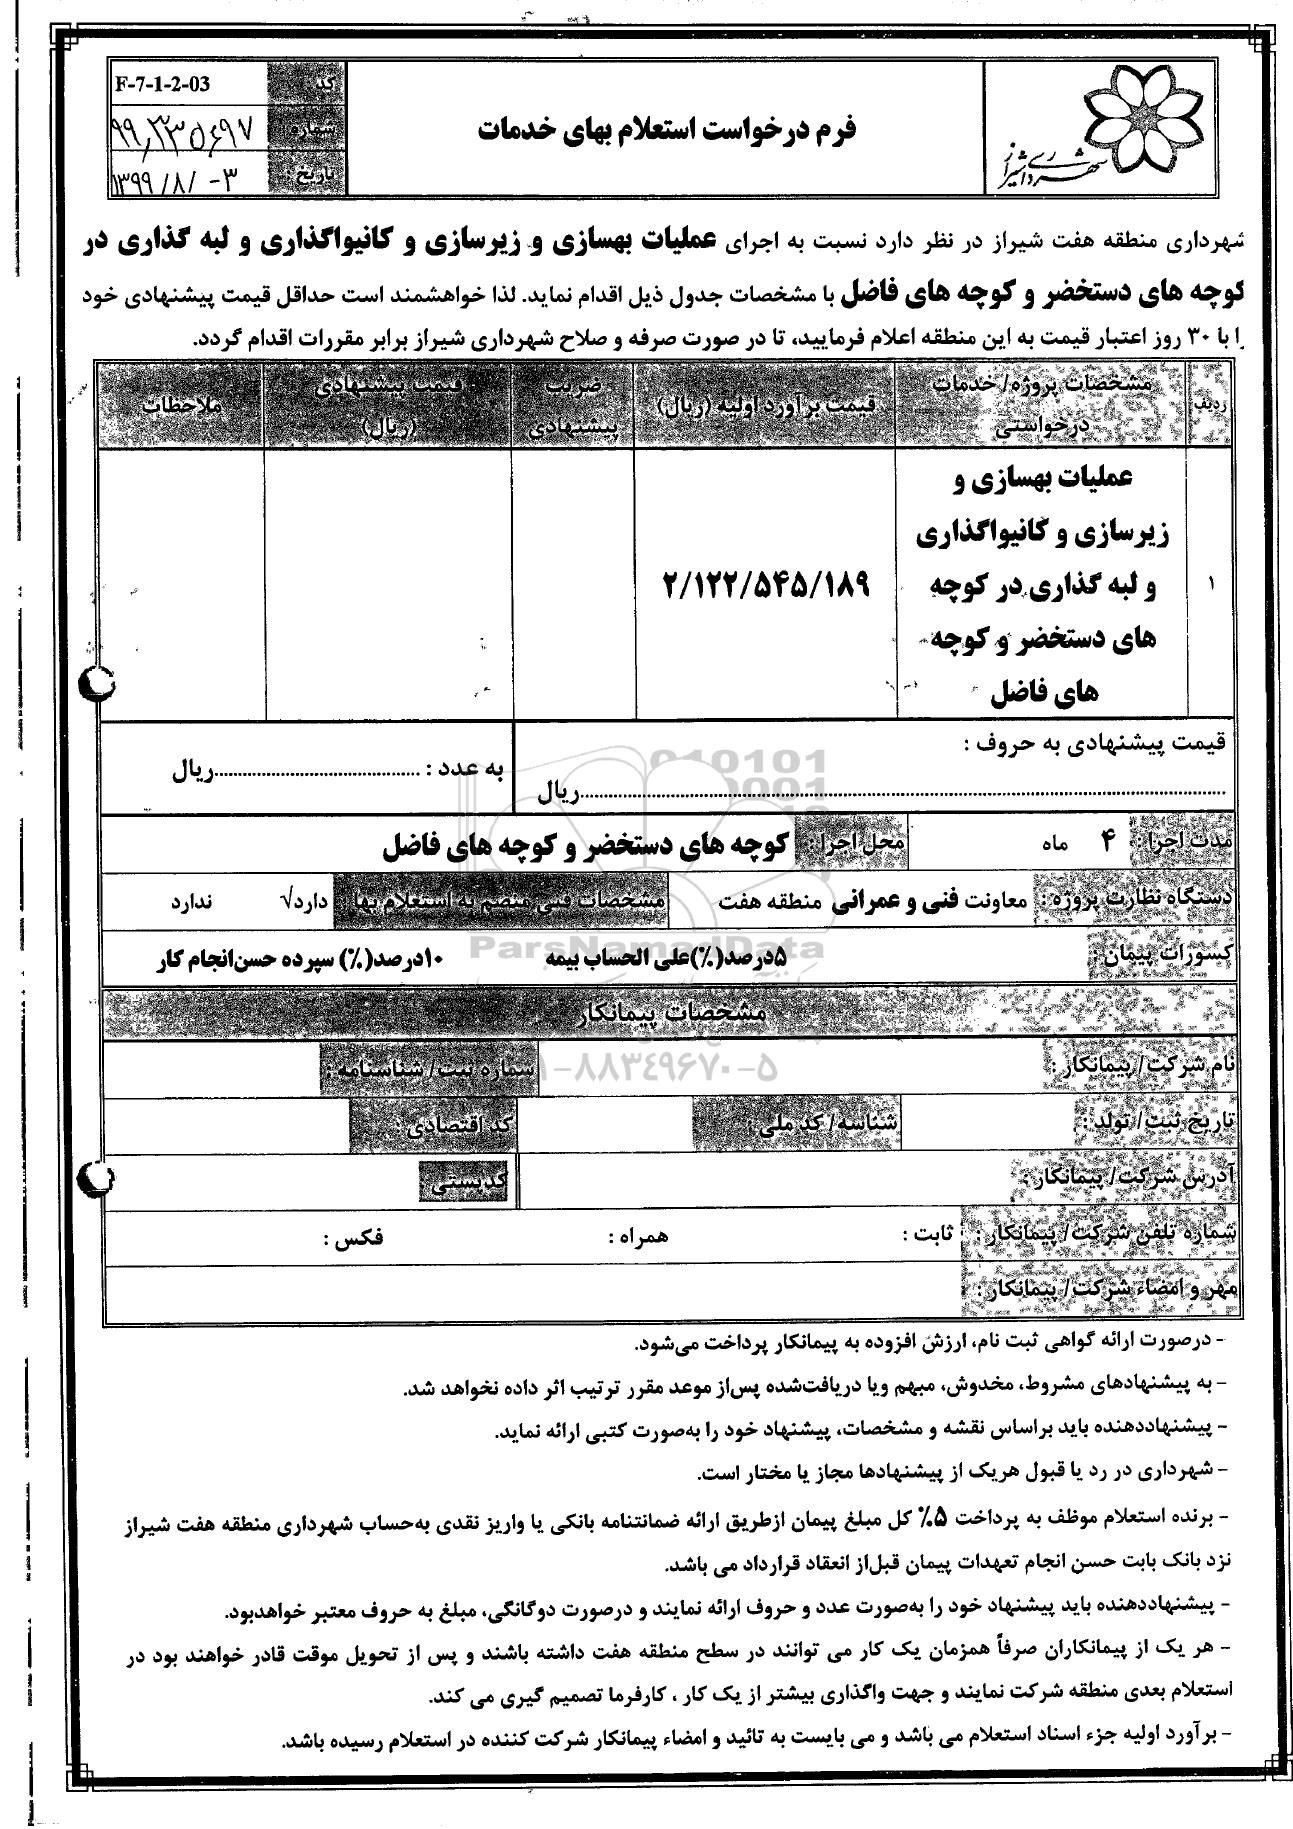 شهرداری شیراز
فرم درخواست استعلام بهای خدمات
کد F-7-1-2-03
شماره
تاریخ : ۱۳۹۹/۸/۰۳
شهرداری منطقه هفت شیراز در نظر دارد نسبت به اجرای عملیات بهسازی و زیرسازی و کانیواگذاری و لبه گذاری در
کوچه های دستخضر و کوچه های فاضل با مشخصات جدول ذیل اقدام نماید. لذا خواهشمند است حداقل قیمت پیشنهادی خود
را با ۳۰ روز اعتبار قیمت به این منطقه اعلام فرمایید، تا در صورت صرفه و صلاح شهرداری شیراز برابر مقررات اقدام گردد.
ردیف
مشخصات پروژه/ خدمات
درخواستی
قیمت برآورد اولیه (ریال)
ضریب
پیشنهادی
قیمت پیشنهادی
(ریال)
ملاحظات
۱
عملیات بهسازی و
زیرسازی و کانیواگذاری
و لبه گذاری در کوچه
های دستخضر و کوچه
های فاضل
۲/۱۲۲/۵۴۵/۱۸۹
قیمت پیشنهادی به حروف :
ریال
به عدد : ریال
مدت اجرا : ۴ ماه محل اجرا : کوچه های دستخضر و کوچه های فاضل
دستگاه نظارت پروژه : معاونت فنی و عمرانی منطقه هفت مشخصات فنی منضم به استعلام بها : دارد√ ندارد
کسورات پیمان : ۵درصد(٪)علی الحساب بیمه ۱۰درصد(٪) سپرده حسن‌انجام کار
مشخصات پیمانکار
نام شرکت/ پیمانکار : شماره ثبت/ شناسنامه :
تاریخ ثبت/ تولد : شناسه/ کد ملی : کد اقتصادی :
آدرس شرکت/ پیمانکار : کدپستی :
شماره تلفن شرکت/ پیمانکار : ثابت : همراه : فکس :
مهر و امضاء شرکت/ پیمانکار :
- درصورت ارائه گواهی ثبت نام، ارزش افزوده به پیمانکار پرداخت می‌شود.
- به پیشنهادهای مشروط، مخدوش، مبهم ویا دریافت‌شده پس‌از موعد مقرر ترتیب اثر داده نخواهد شد.
- پیشنهاددهنده باید براساس نقشه و مشخصات، پیشنهاد خود را به‌صورت کتبی ارائه نماید.
- شهرداری در رد یا قبول هریک از پیشنهادها مجاز یا مختار است.
- برنده استعلام موظف به پرداخت ۵٪ کل مبلغ پیمان ازطریق ارائه ضمانتنامه بانکی یا واریز نقدی به‌حساب شهرداری منطقه هفت شیراز
نزد بانک بابت حسن انجام تعهدات پیمان قبل‌از انعقاد قرارداد می باشد.
- پیشنهاددهنده باید پیشنهاد خود را به‌صورت عدد و حروف ارائه نمایند و درصورت دوگانگی، مبلغ به حروف معتبر خواهدبود.
- هر یک از پیمانکاران صرفاً همزمان یک کار می توانند در سطح منطقه هفت داشته باشند و پس از تحویل موقت قادر خواهند بود در
استعلام بعدی منطقه شرکت نمایند و جهت واگذاری بیشتر از یک کار ، کارفرما تصمیم گیری می کند.
- برآورد اولیه جزء اسناد استعلام می باشد و می بایست به تائید و امضاء پیمانکار شرکت کننده در استعلام رسیده باشد.
ParsNamadData
۸۸۳۴۹۶۷۰-۵